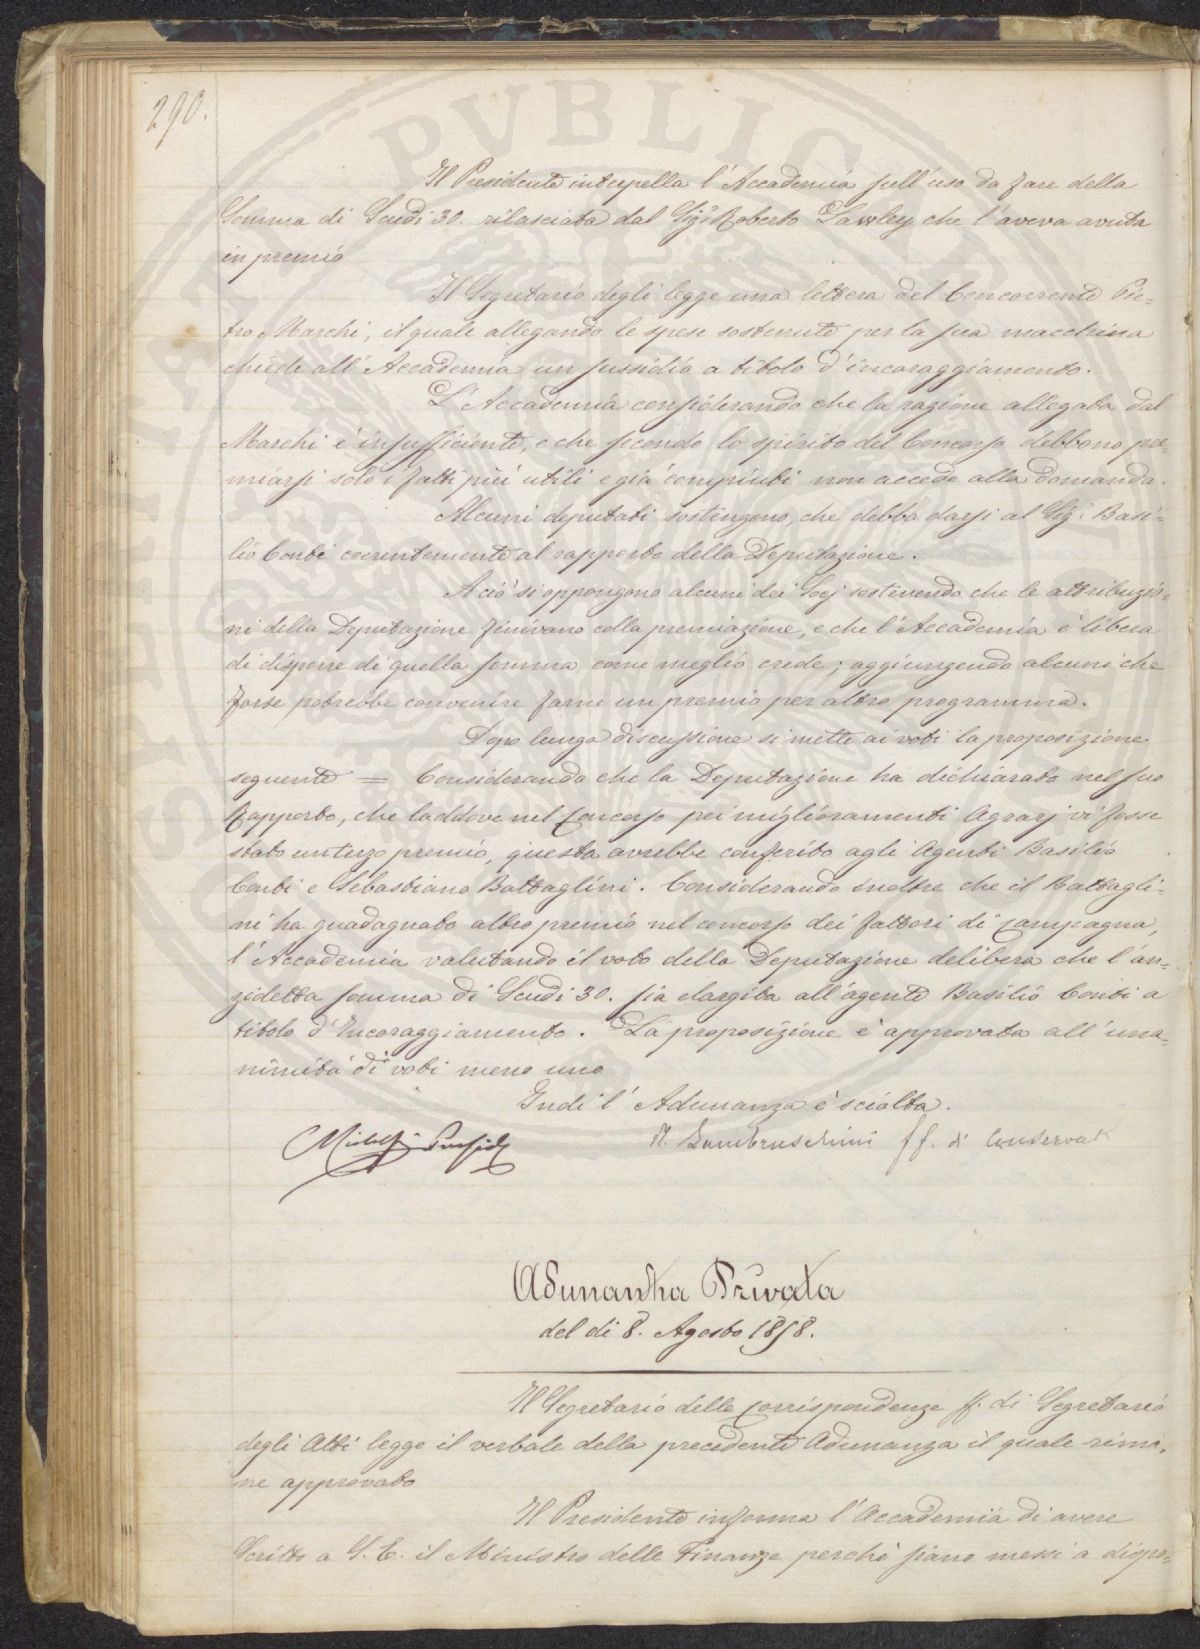 290.
Il Presidente interpella l'Accademia sull'uso da fare della
Somma di Scudi 30. rilasciata dal Sigr Roberto Lawley che l'aveva avuta
in premio
Il Segretario degli legge una lettera del Concorrente Pie=
tro Marchi, il quale allegando le spese sostenute per la sua macchina
chiede all'Accademia un sussidio a titolo d'incoraggiamento.
L'Accademia considerando che la ragione allegata dal
Marchi è insufficiente, e che secondo lo spirito del Concorso debbono pre=
miarsi solo i fatti più utili e già compiuti non accede alla domanda.
Alcuni deputati sostengono, che debba darsi al Sigr. Basi=
lio Conti coerentemente al rapporto della Deputazione.
A ciò si oppongono alcuni dei Socj sostenendo che le attribuzio=
ni della Deputazione finivano colla premiazione, e che l'Accademia è libera
di disporre di quella somma come meglio crede; aggiungendo alcuni che
forse potrebbe convenire farne un premio per altro programma.
Dopo lunga discussione si mette ai voti la proposizione
seguente = Considerando che la Deputazione ha dichiarato nel suo
Rapporto, che laddove nel Concorso pei miglioramenti Agrarj vi fosse
stato un terzo premio, questo avrebbe conferito agli Agenti Basilio
Conti e Sebastiano Battaglini. Considerando inoltre che il Battagli=
ni ha guadagnato altro premio nel concorso dei fattori di Campagna,
l'Accademia valutando il voto della Deputazione delibera che l'an=
zidetta somma di Scudi 30. sia elargita all'agente Basilio Conti a
titolo d'Incoraggiamento. La proposizione è approvata all'una=
nimità di voti meno uno
Indi l'Adunanza è sciolta.
Ridolfi Presid
R. Lambruschini ff. di Conservat
Adunanza Privata
del di 8. Agosto 1858.
Il Segretario delle Corrispondenze ff. di Segretario
degli Atti legge il verbale della precedente Adunanza il quale rima=
ne approvato
Il Presidente informa l'Accademia di avere
Scritto a S. E. il Ministro delle Finanze perchè siano messi a dispo=
SIGILLVM PVBLIC